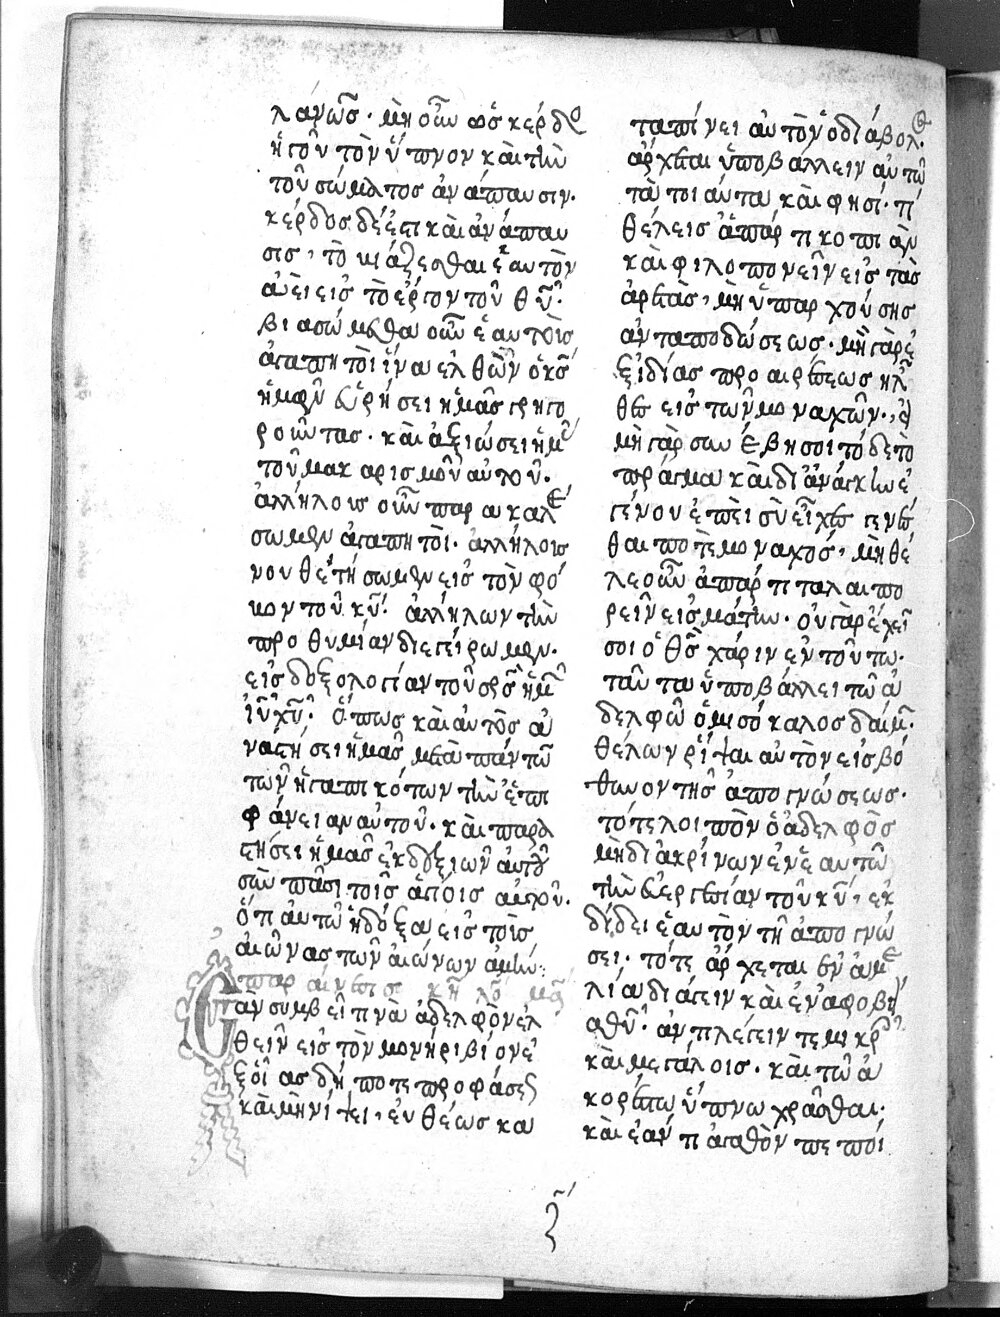 λάνως· μὴ οὖν ὡς κέρδο
ἡγοῦ τὸν ὕπνον καὶ τὴν
τοῦ σώματος ἀνάπαυσιν·
κέρδος δέ ἐστι καὶ ἀνάπαυ
σις, τὸ βιάζεσθαι ἑαυτὸν
ἀεὶ εἰς τὸ ἔργον τοῦ θῦ·
βιασώμεθα οὖν ἑαυτοὺς
ἀγαπητοὶ ἵνα ἐλθὼν ὁ κς
ἡμῶν εὑρήσει ἡμᾶς γρηγο
ροῦντας· καὶ ἀξιώσει ἡμ
τοῦ μακαρισμοῦ αὐτοῦ·
ἀλλήλους οὖν παρακαλέ
σωμεν ἀγαπητοί· ἀλλήλους
νουθετήσωμεν εἰς τὸν φό
βον τοῦ κῦ· ἀλλήλων τὴν
προθυμίαν διεγείρωμεν·
εἰς δοξολογίαν τοῦ σρς ἡμ
ἰῦ χῦ· ὅπως καὶ αὐτὸς ἀ
ναστήσει ἡμᾶς μετὰ πάντω
τῶν ἠγαπηκότων τὴν ἐπι
φάνειαν αὐτοῦ· καὶ παρα
στήσει ἡμᾶς ἐκ δεξιῶν αὐτοῦ
σὺν πᾶσι τοῖς ἁγίοις αὐτοῦ·
ὅτι αὐτῶ ἡ δόξα εἰς τοὺς
αἰῶνας τῶν αἰώνων ἀμήν:
Ἐὰν συμβεῖ τινὰ ἀδελφὸν ἐλ
θεῖν εἰς τὸν μονήρι βίον ἐ
ξ οἵας δήποτε προφάσεως
καὶ μὴ νίψει, εὐθέως κα
ταπίνει αὐτὸν ὁ διάβολ·
ἄρχεται ὑποβάλλειν αὐτῶ
τὰ τοιαῦτα καὶ φησί· τί
θέλεις ἀπάρτι κοπιᾶν
καὶ φιλοπονεῖν εἰς τὰς
ἀρετὰς, μὴ ὑπαρχούσης
ἀνταποδώσεως· μὴ γὰρ ἐ
ξ ἰδίας προαιρέσεως ἦλ
θες εἰς τῶν μοναχῶν,
μὴ γὰρ συνέβη σοι τόδε τὸ
πράγμα καὶ δι ἀνάγκην ἐ
γένου ἐπεὶ σὺ εἶχες γενέσ
θαι ποτε μοναχός, μὴ θέ
λε οὖν ἀπάρτι ταλαιπο
ρεῖν εἰς μάτην· οὐ γὰρ ἔχει
σοι ὁ θς χάριν ἐν τούτω·
ταῦτα ὑποβάλλει τῶ ἀ
δελφῶ ὁ μισόκαλος δαίμ·
θέλων ῥίψαι αὐτὸν εἰς βό
θυνον τῆς ἀπογνώσεως·
τότε λοιπὸν ὁ ἀδελφὸς
μὴ διακρίνων ἐν ἑαυτῶ
τὴν εὐεργεσίαν τοῦ κῦ, ἐκ
δίδει ἑαυτὸν τῆ ἀπογνώ
σει· τότε ἄρχεται ἐν ἀμε
λία διάγειν καὶ ἐν ἀφοβί
α θῦ· ἀντιλέγειν τε μικρ
καὶ μεγάλοις· καὶ τῶ ἀ
κορέστω ὕπνω χρᾶσθαι·
καὶ ἐάν τι ἀγαθὸν πεποί